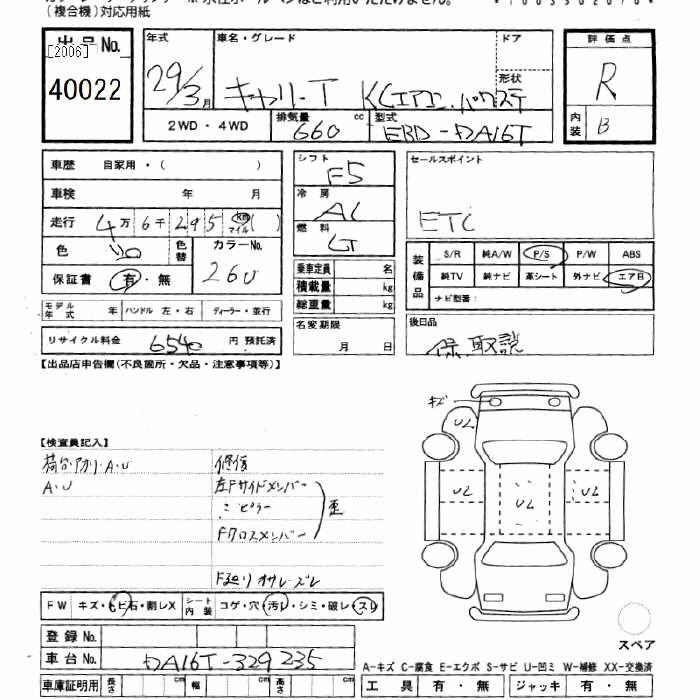 （複合機）対応用紙
出品No. 年式 車名・グレード ドア 評価点
[2006]
40022 29/3月 キャリーT KCエアコン.パワステ 形状 R
2WD・4WD 排気量 660 cc 型式 EBD-DA16T 内装 B
車歴 自家用・( ) シフト F5 セールスポイント
車検 年 月 冷房 AC
走行 4万6千295 km マイル ( ) 燃料 ETC
色 色替 カラーNo. 装備品 S/R 純A/W P/S P/W ABS
保証書 有・無 260 乗車定員 名 純TV 純ナビ 革シート 外ナビ エアB
積載量 kg ナビ型番：
モデル年式 年 ハンドル 左・右 ディーラー・並行 総重量 kg
リサイクル料金 6540 円 預託済 名変期限 月 日 後日品
保.取説
【出品店申告欄(不良箇所・欠品・注意事項等)】
キズ
UL
【検査員記入】
A・U 修復
A・U 左Fサイドメンバー
〃 ピラー 歪
Fクロスメンバー
UL UL UL
F廻りオサレ・ズレ
FW キズ・ヒビ石・割レX シート内装 コゲ・穴・汚レ・シミ・破レ・スレ
登録No.
スペア
車台No. DA16T-329235
A-キズ C-腐食 E-エクボ S-サビ U-凹ミ W-補修 XX-交換済
車庫証明用 長さ cm 幅 cm 高さ cm 工具 有・無 ジャッキ 有・無